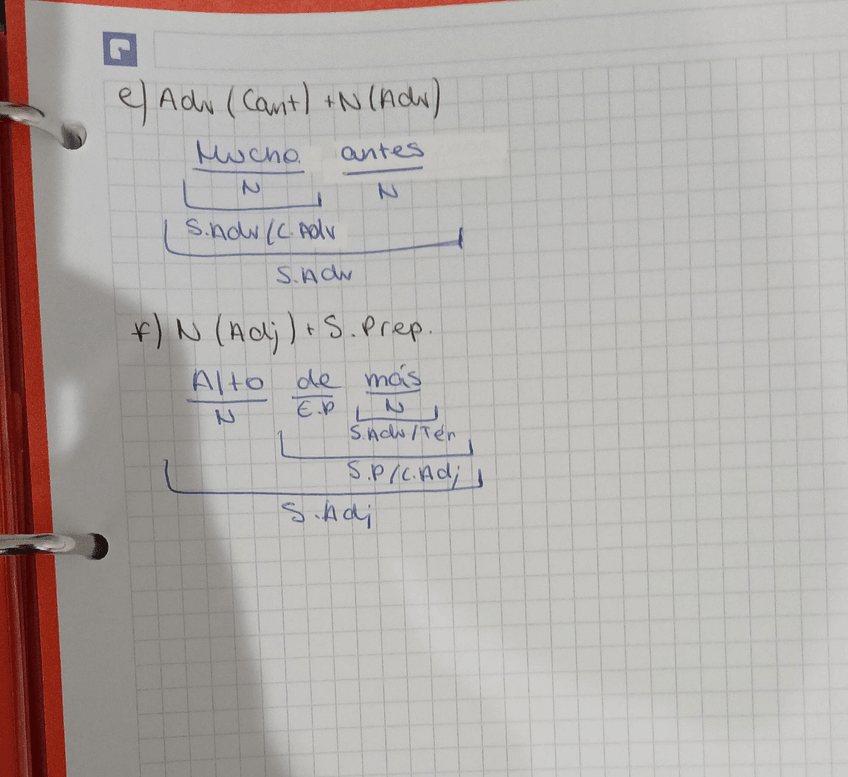 e) Adv (Cant) + N (Adv)
Mucho antes
N N
S.Adv/C.Adv
S.Adv
f) N (Adj) + S. Prep.
Alto de más
N E.P N
S.Adv/Tér
S.P/C.Adj
S.Adj